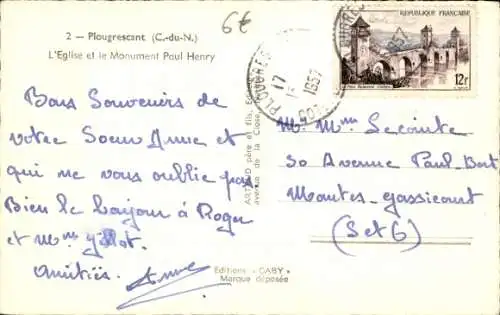 2 — Plougrescant (C.-du-N.)
L'Eglise et le Monument Paul Henry
6€
REPUBLIQUE FRANÇAISE
12F
PLOUGRES
17
1957
Bons Souvenirs de
votre Soeur Anne et
qui ne vous oublie pas
Bien le bonjour à Roger
et Mme
Amitiés. Anne
ARTAUD père et fils, Editeurs
avenue de la Close
Editions "GABY"
Marque déposée
M. Mme Lecointe
30 Avenue Paul-Bert
Mantes-gassicourt
(S et O)